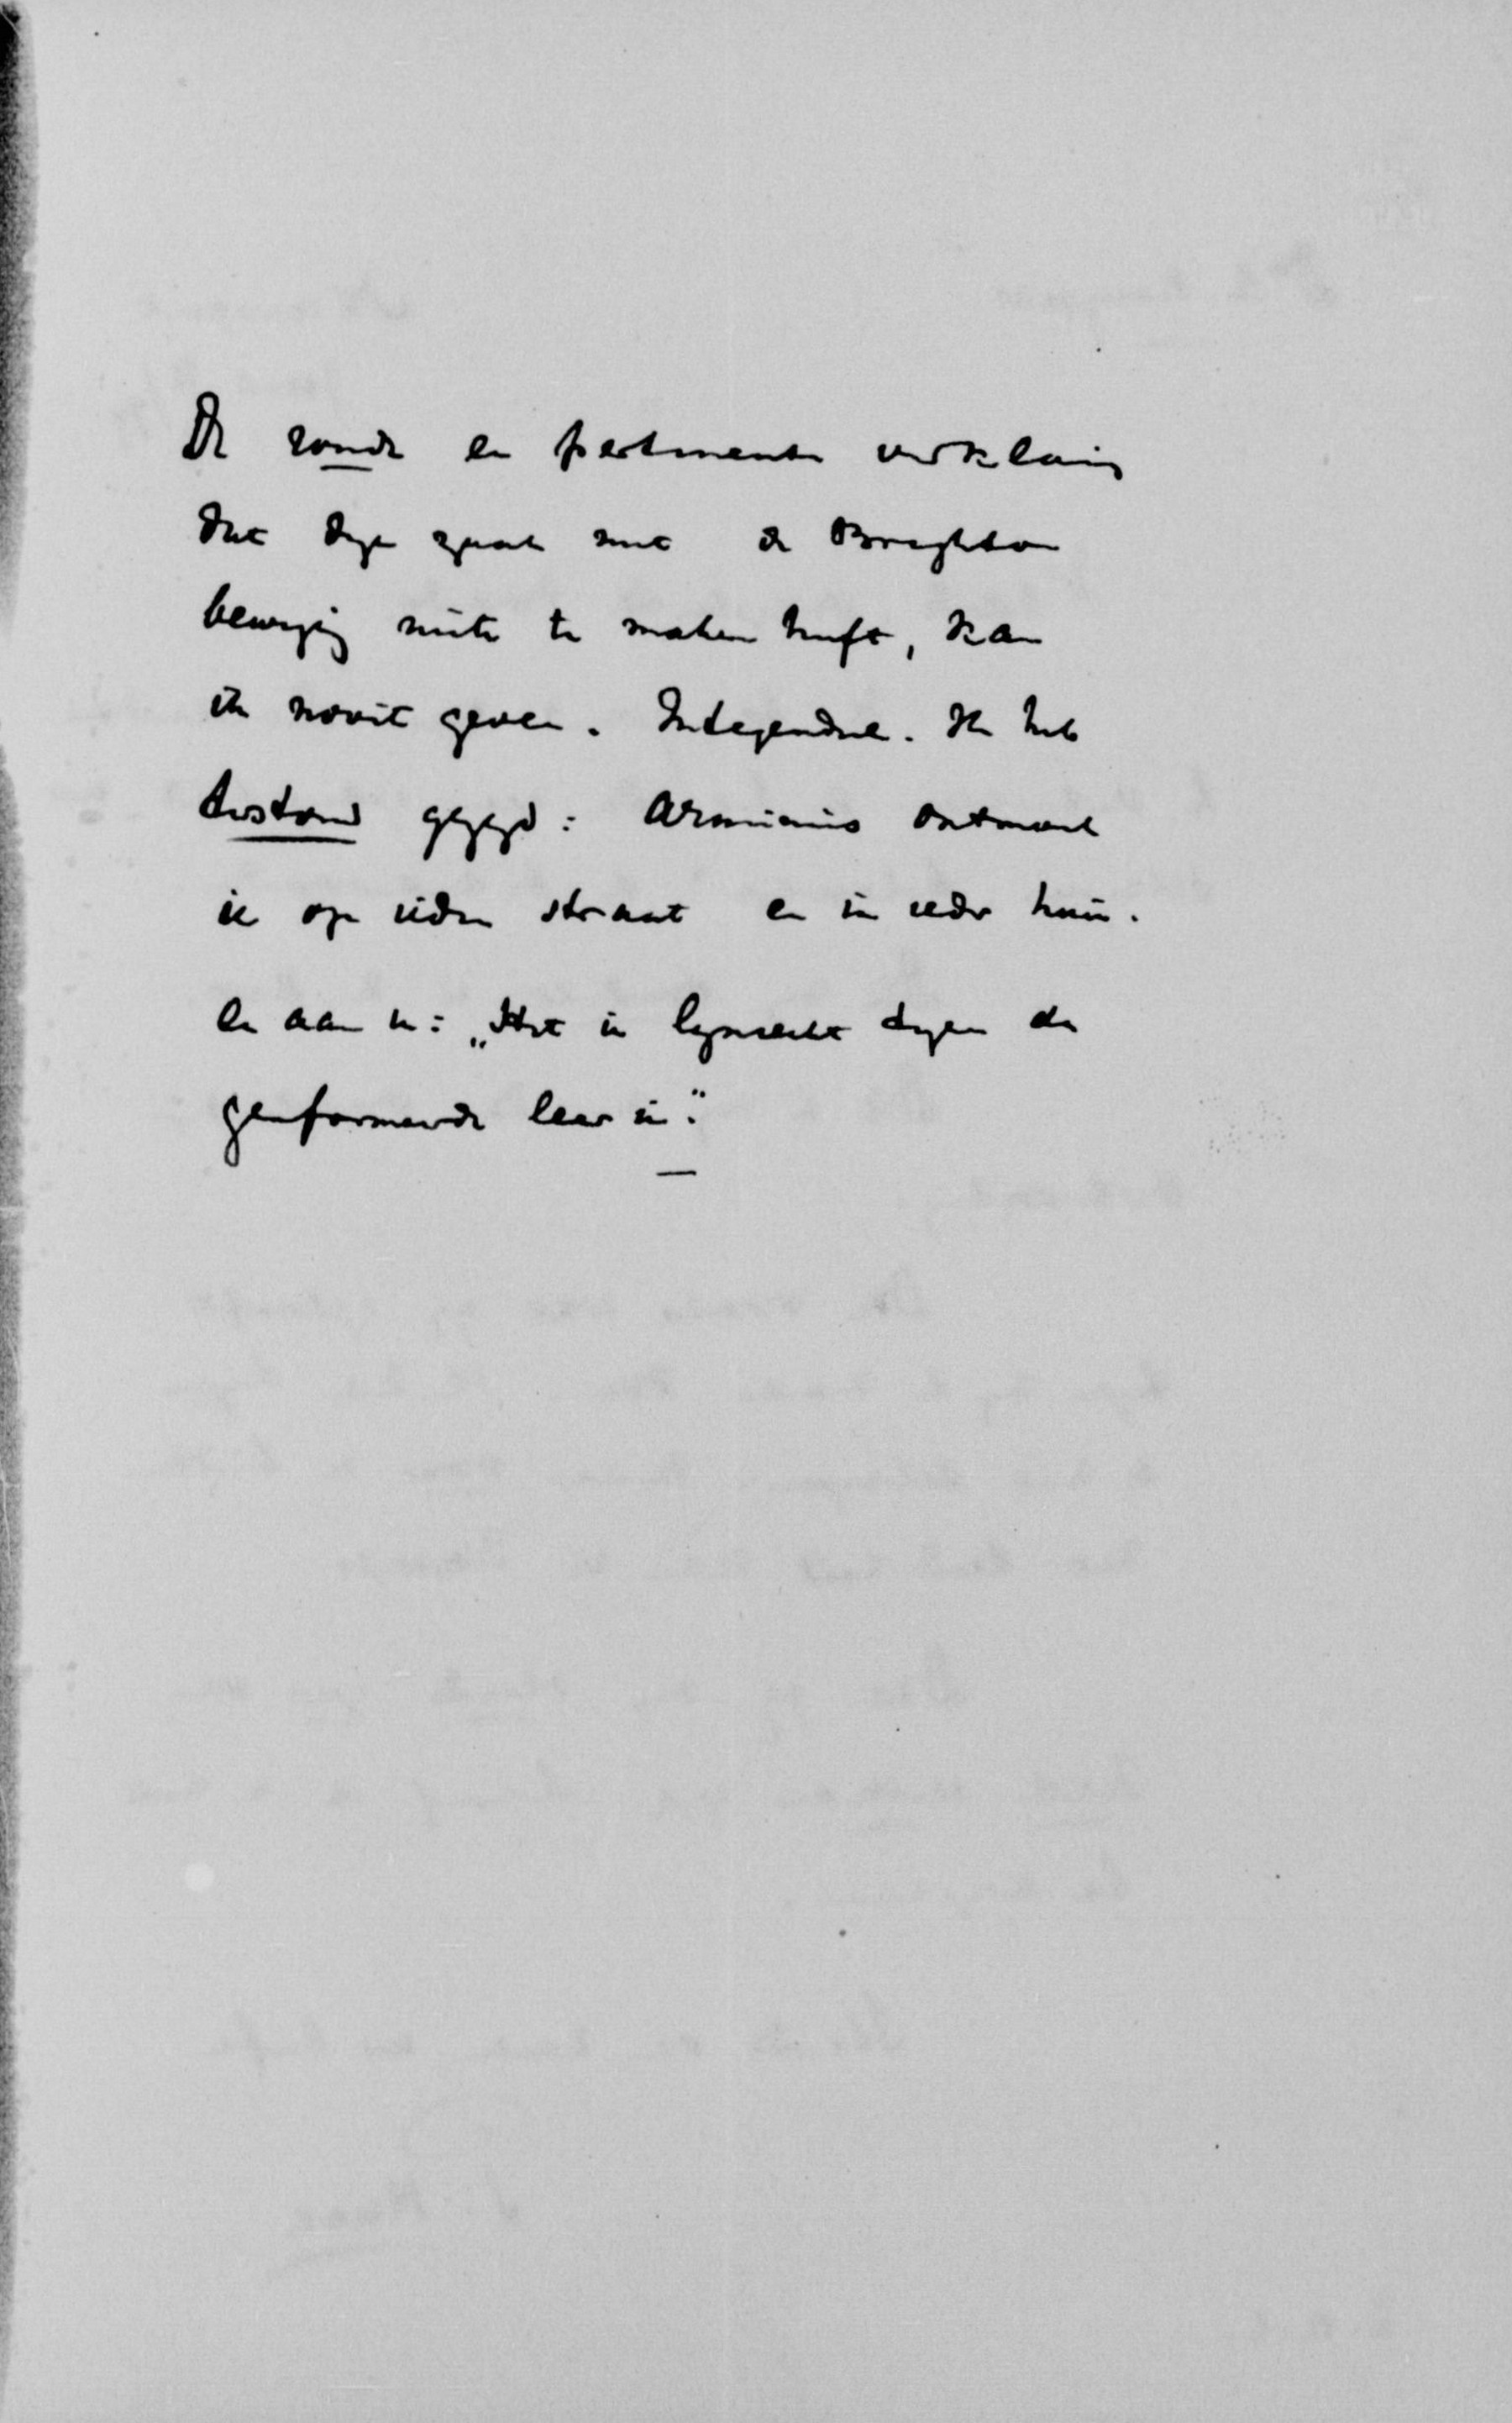 De ronde en pertinente verklaring
dat deze zaak met de Brighton
beweging niets te maken heeft, kan
ik nooit geven. Integendeel. Ik heb
terstond gezegd: Arminius ontmoet
je op iedere straat en in ieder huis.
En aan u: „Het is lijnrecht tegen de
gereformeerde leer in."